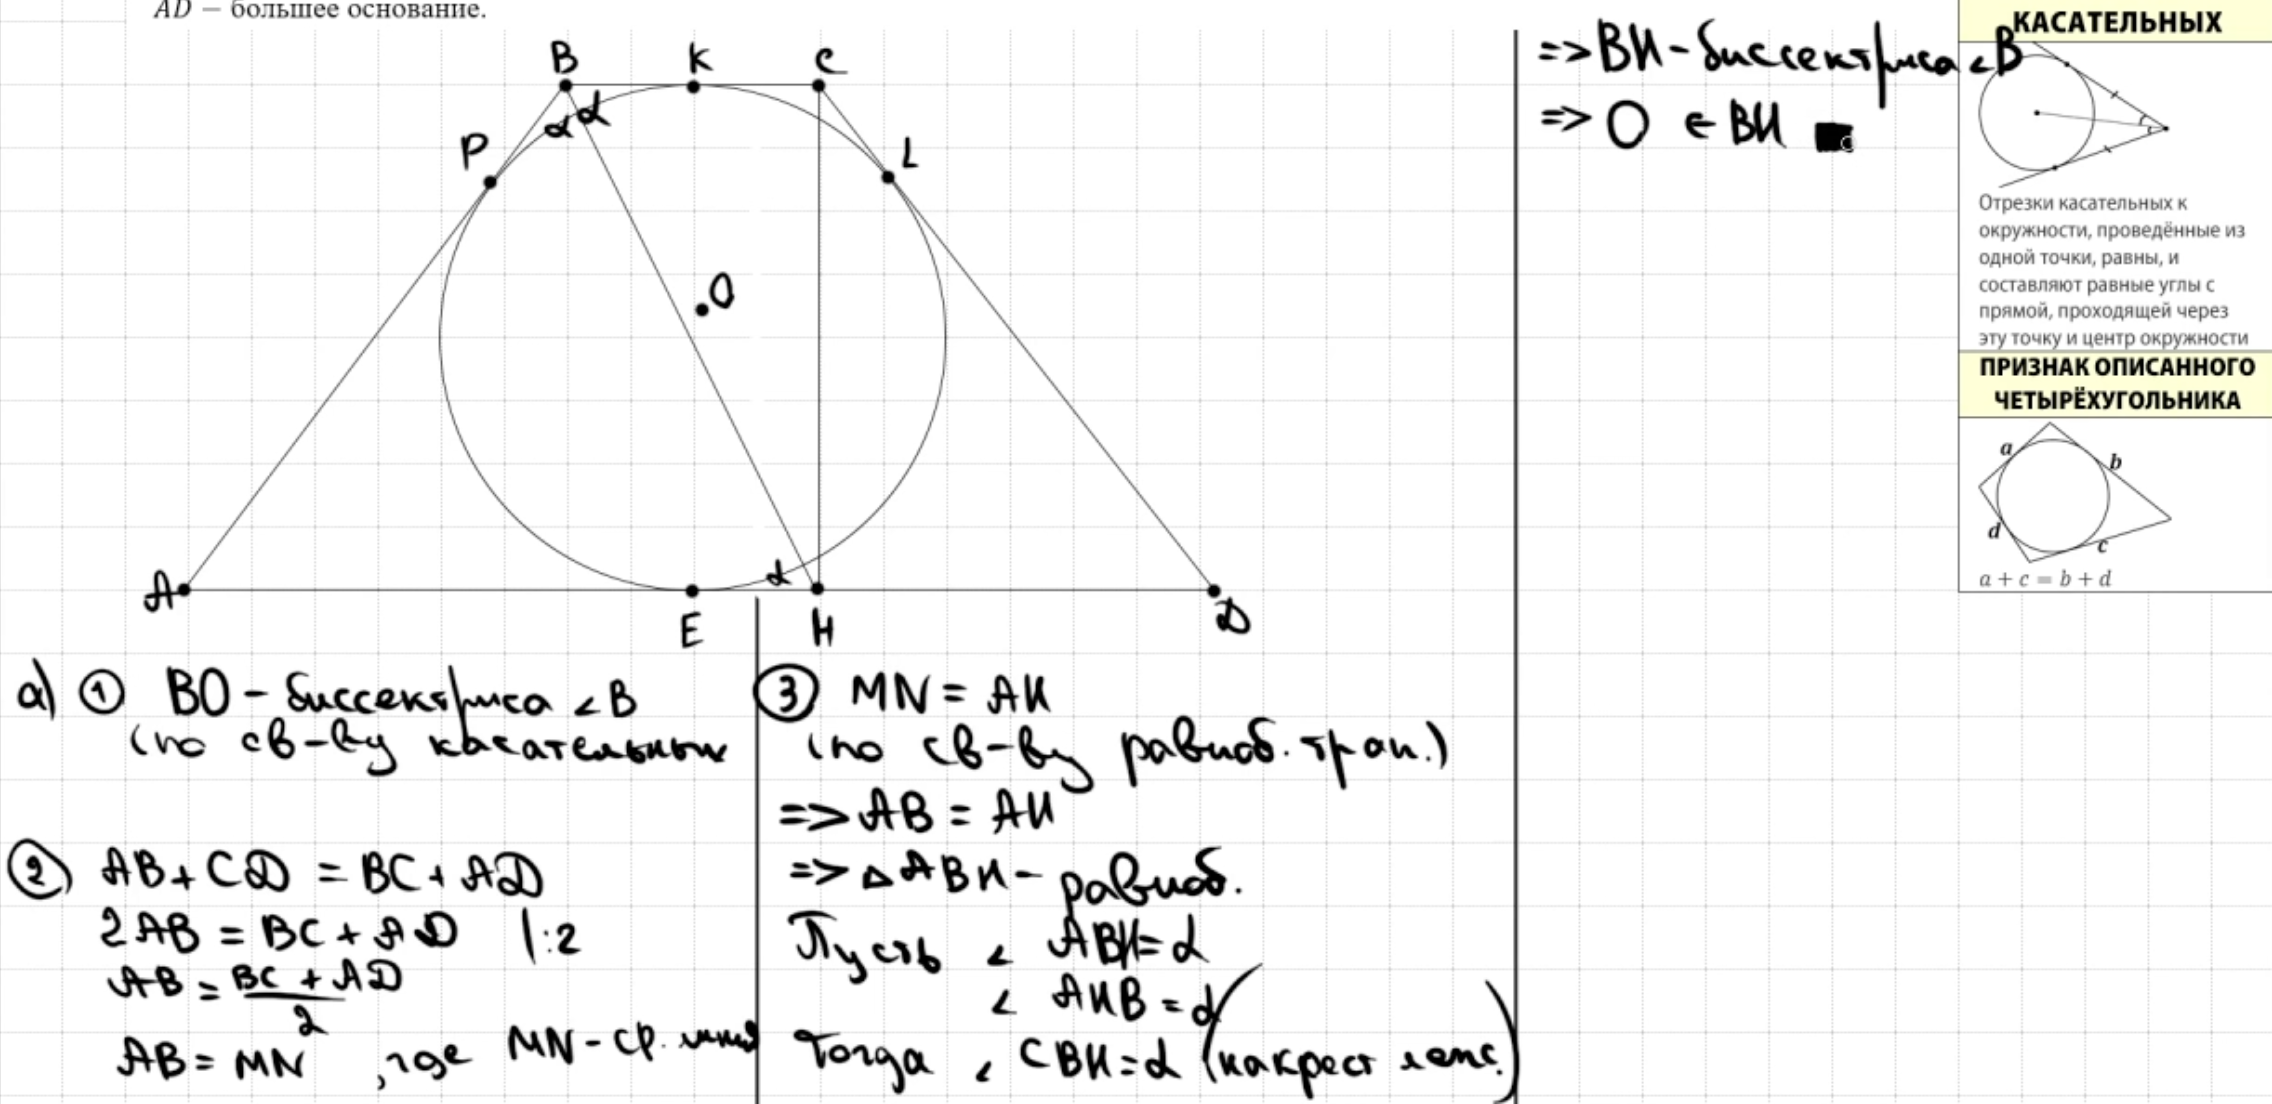 AD — большее основание.
B K C
α α
P L
O
α
A E H D
а) ① BO - биссектриса ∠B
(по св-ву касательных
② AB + CD = BC + AD
2AB = BC + AD |:2
AB = BC + AD / 2
AB = MN, где MN - ср. линия
③ MN = AH
(по св-ву равноб. трап.)
=> AB = AH
=> △ABH - равноб.
Пусть ∠ABH = α
∠AHB = α
Тогда ∠CBH = α (накрест леж.)
=> BH - биссектриса ∠B
=> O ∈ BH ■
КАСАТЕЛЬНЫХ
Отрезки касательных к
окружности, проведённые из
одной точки, равны, и
составляют равные углы с
прямой, проходящей через
эту точку и центр окружности
ПРИЗНАК ОПИСАННОГО
ЧЕТЫРЁХУГОЛЬНИКА
a b
d c
a + c = b + d